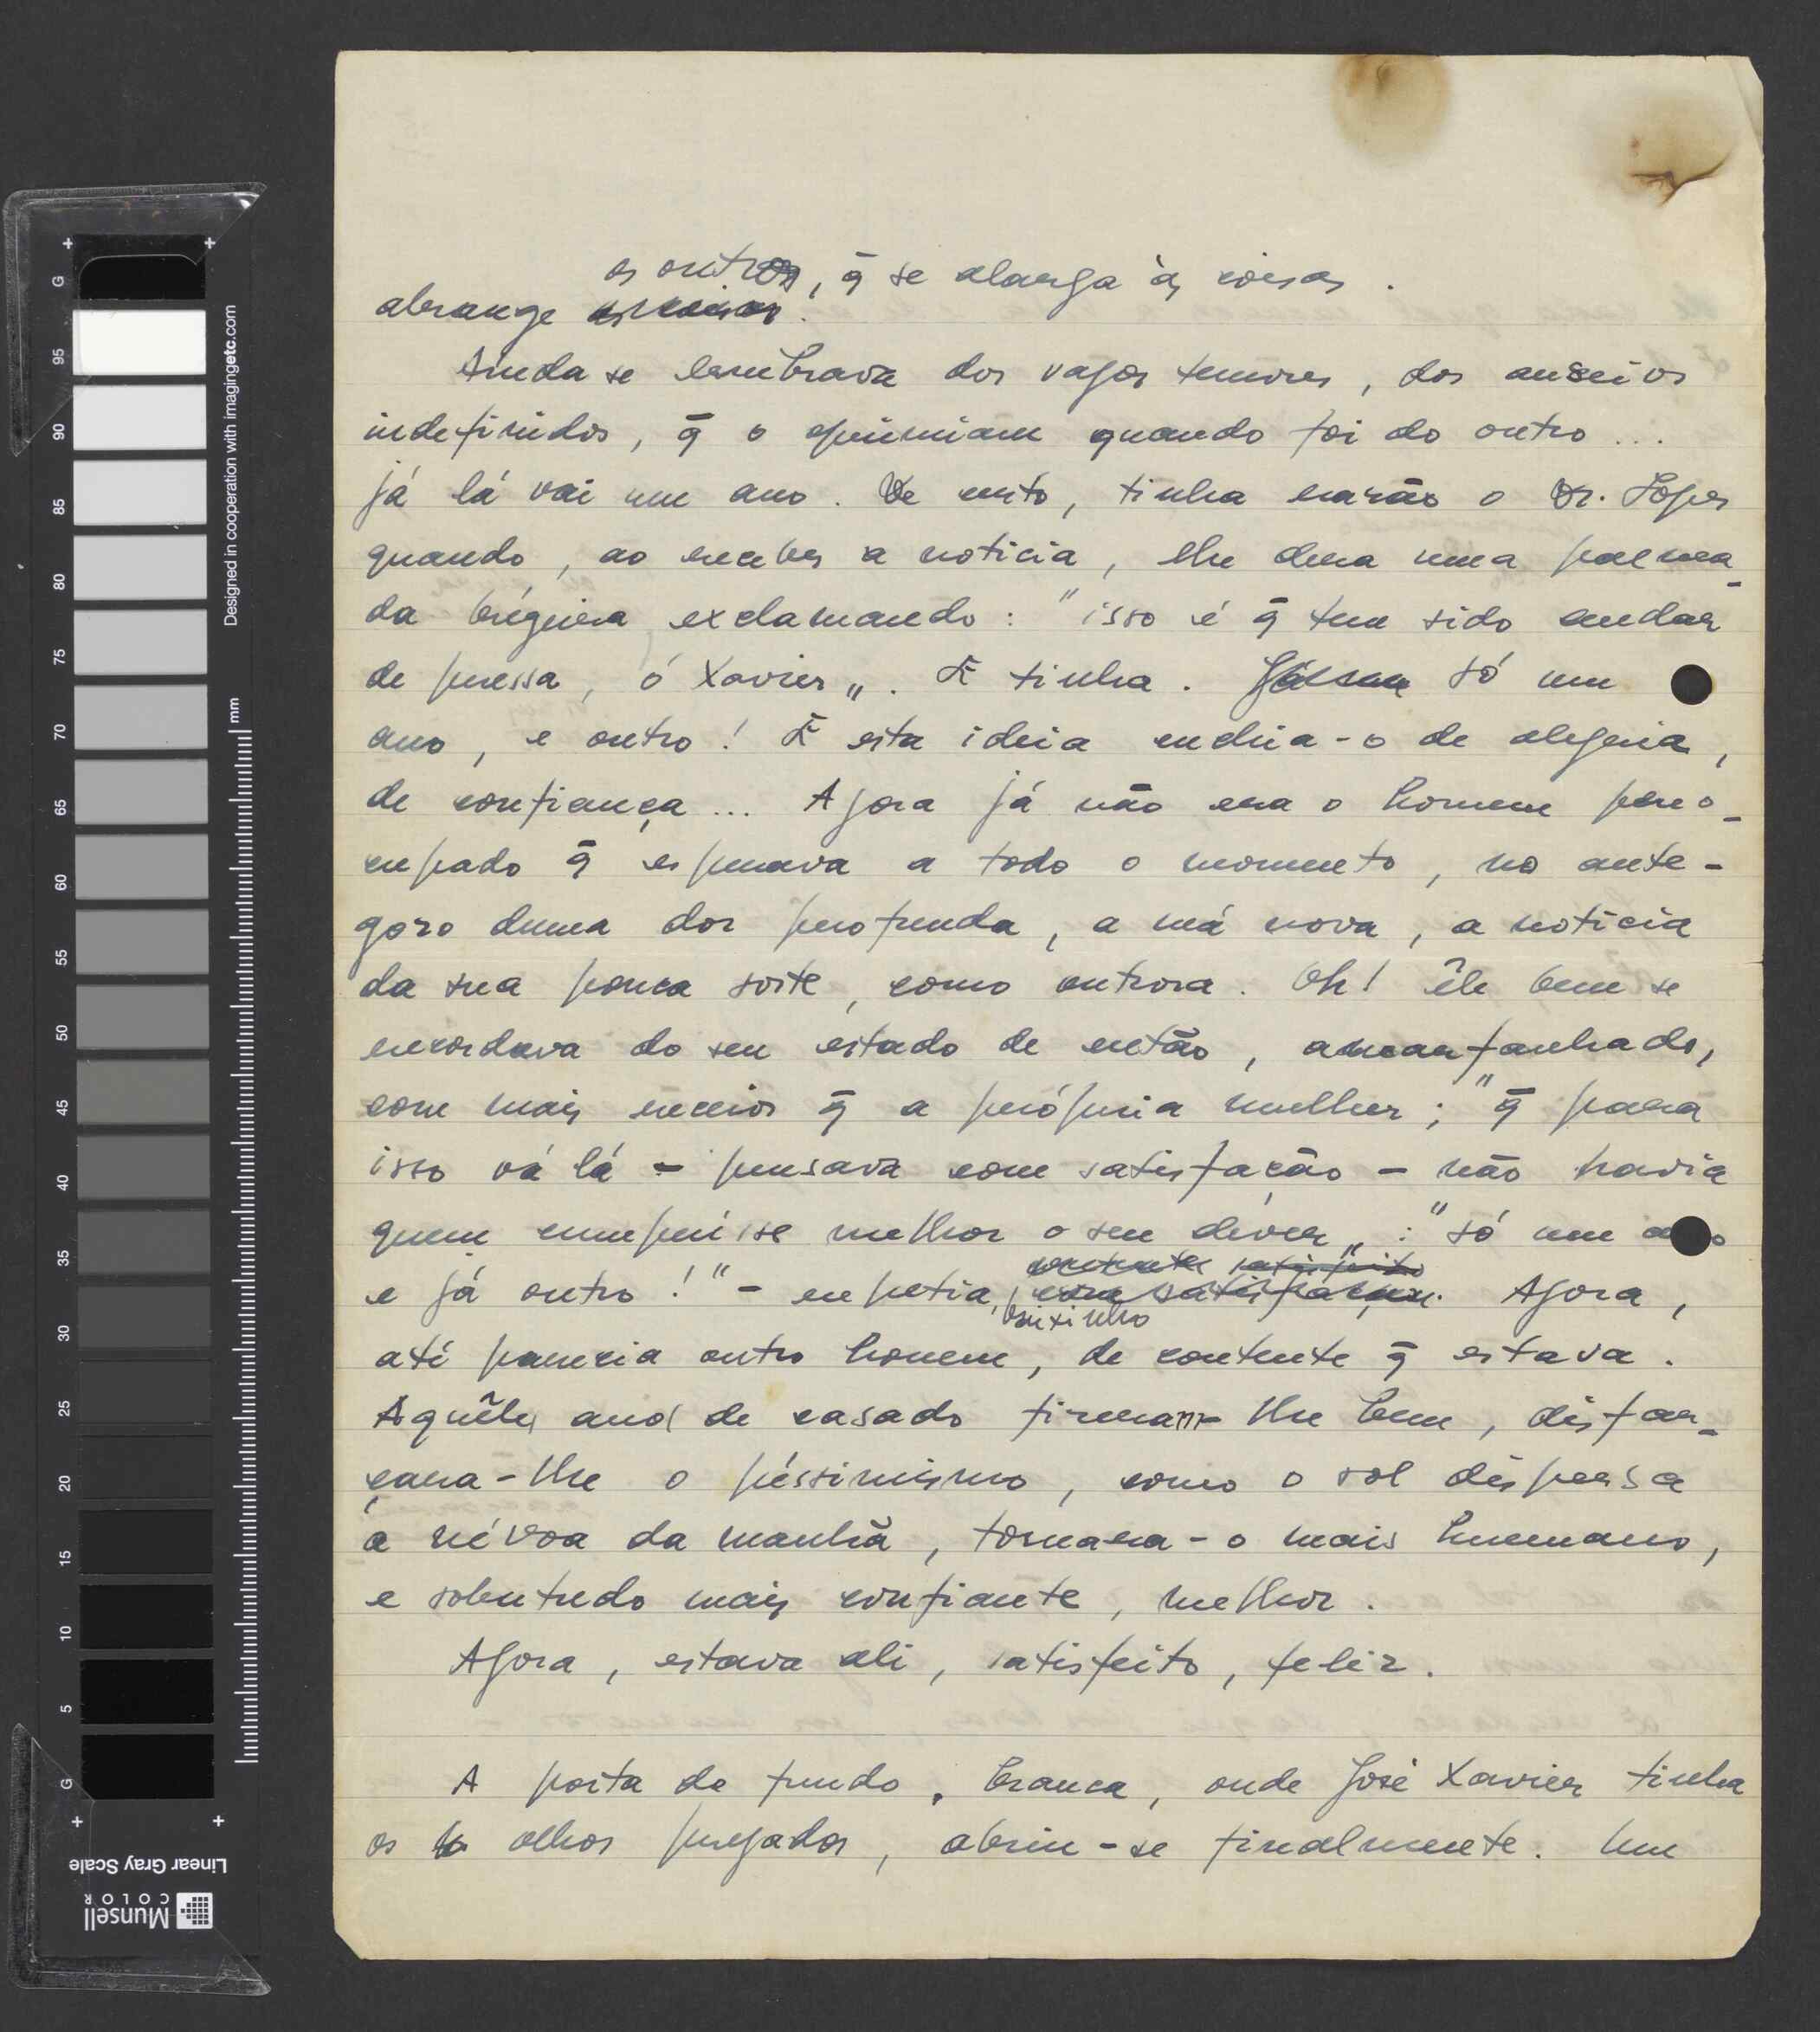 os outros, q̄ se alarga às coisas.
abrange as coisas.
Ainda se lembrava dos vagos temores, dos anseios
indefinidos, q̄ o opprimiam quando foi do outro...
já lá vai um ano. De certo, tinha razão o Dr. Lopes
quando, ao receber a noticia, lhe dera uma palma-
da brégeira exclamando: "isso é q̄ tem sido andar
de pressa, ó Xavier". E tinha. só um
ano, e outro! E esta ideia enchia-o de alegria,
de confiança... Agora já não era o homem preo-
cupado q̄ esperava a todo o momento, no ante-
gozo duma dor profunda, a má nova, a noticia
da sua pouca sorte, como outrora. Oh! êle bem se
recordava do seu estado de então, amarfanhado,
com mais receios q̄ a própria mulher; "q̄ para
isso vá lá - pensava com satisfação - não havia
quem cumprisse melhor o seu dever": "só um ano
contente satisfeito
e já outro!" - repetia, com satisfação. Agora,
baixinho
até parecia outro homem, de contente q̄ estava.
Aquêles anos de casado fizeram-lhe bem, disfar-
çara-lhe o péssimismo, como o sol dispersa
a névoa da manhã, tornara-o mais humano,
e sobretudo mais confiante, melhor.
Agora, estava ali, satisfeito, feliz.
A porta do fundo, branca, onde José Xavier tinha
os olhos pregados, abriu-se finalmente. Um
Designed in cooperation with imagingetc.com
mm
G
95
90
85
80
75
70
65
60
55
50
45
40
35
30
25
20
15
10
5
G
Linear Gray Scale
Munsell
COLOR